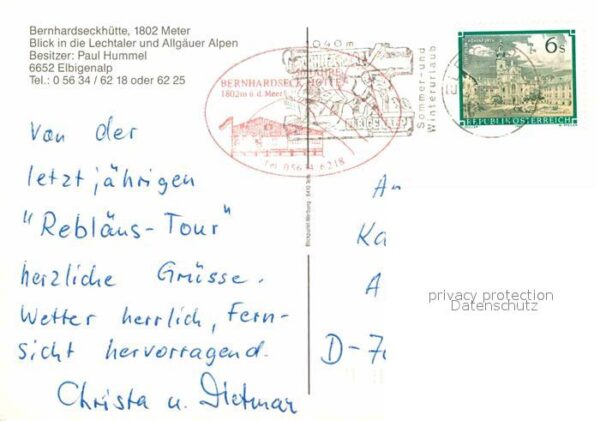 Bernhardseckhütte, 1802 Meter
Blick in die Lechtaler und Allgäuer Alpen
Besitzer: Paul Hummel
6652 Elbigenalp
Tel.: 0 56 34 / 62 18 oder 62 25
1040m
Sommer- und
Winterurlaub
BERNHARDSECK-HÜTTE
1802m ü.d.Meer
Tel. 05634/6218
6s
REPUBLIK ÖSTERREICH
Von der
letztjährigen
"Rebläus-Tour"
herzliche Grüsse.
Wetter herrlich, Fern-
sicht hervorragend.
Christa u. Dietmar
An
Ka
A
D-7
privacy protection
Datenschutz